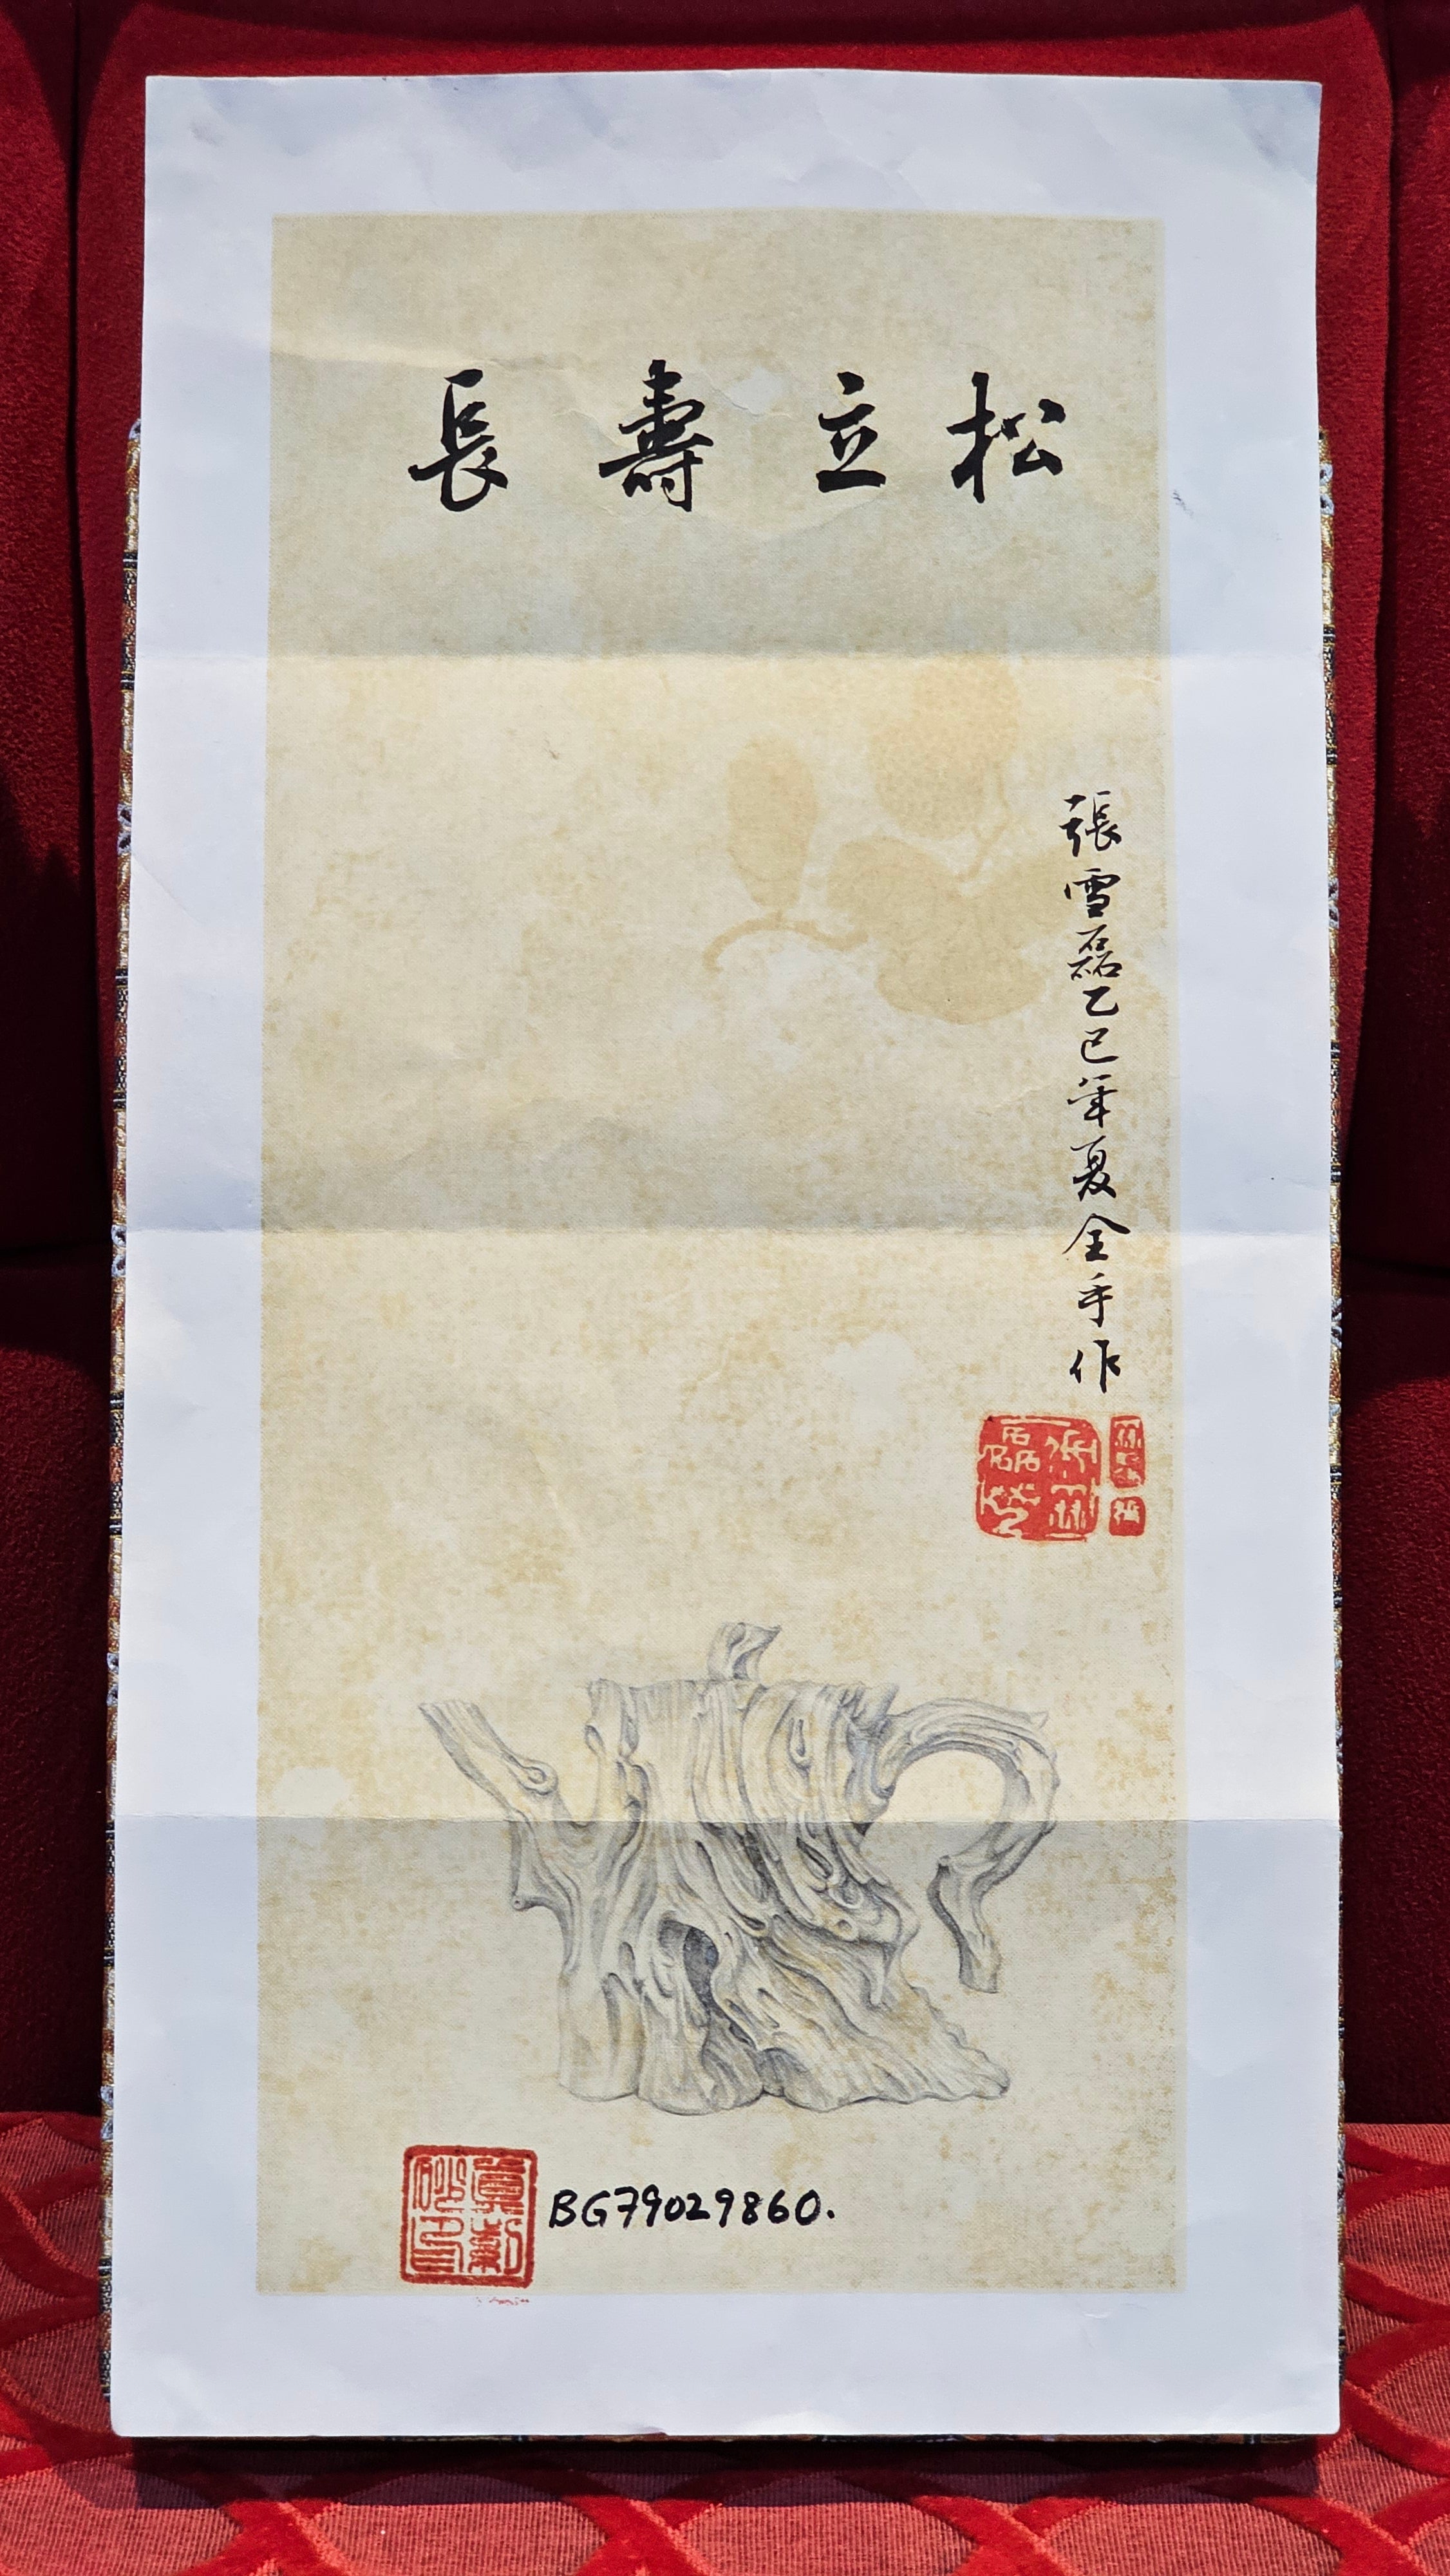 松立壽長
張雪磊乙巳年夏全手作
BG79029860.